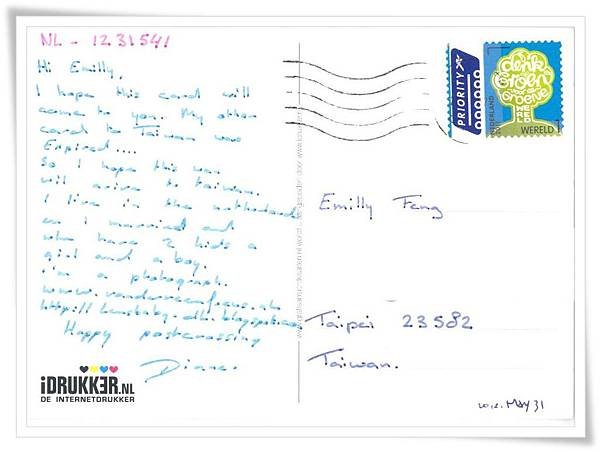 NL - 1231541
Hi Emilly,
I hope this card will
come to you. My other
card to Taiwan was
Expired....
So I hope this was
will arive to taiwan.
I live in the netherland
en I married and
whe have 2 kids a
girl and a boy.
i'm a photograph.
http://lensbaby.dh.blogspot.com
Happy postcrossing
Diane.
iDRUKKER.NL
DE INTERNETDRUKKER
PRIORITY
denk
Groen
voor de
Groene
WERELD
NEDERLAND
WERELD 1
Emilly Feng
Taipei 23582
Taiwan.
2012. MAY 31